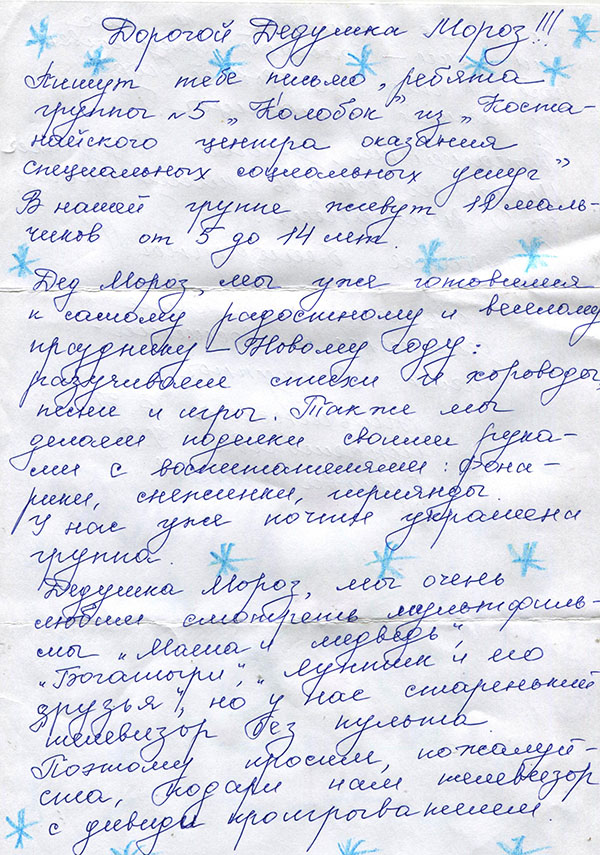 Дорогой Дедушка Мороз!!!
Пишут тебе письмо, ребята
группы №5 „Колобок” из „Коста-
найского центра оказания
специальных социальных услуг”
В нашей группе живут 12 маль-
чиков от 5 до 14 лет.
Дед Мороз, мы уже готовимся
к самому радостному и веселому
празднику – Новому году:
разучиваем стихи и хороводы,
песни и игры. Также мы
делаем поделки своими рука-
ми с воспитателями: фона-
рики, снежинки, гирлянды.
У нас уже почти украшена
группа.
Дедушка Мороз, мы очень
любим смотреть мультфиль-
мы „Маша и медведь”,
„Богатыри”, „Лунтик и его
друзья”, но у нас старенький
телевизор без пульта.
Поэтому просим, пожалуй-
ста, подари нам телевизор
с дивиди проигрывателем.